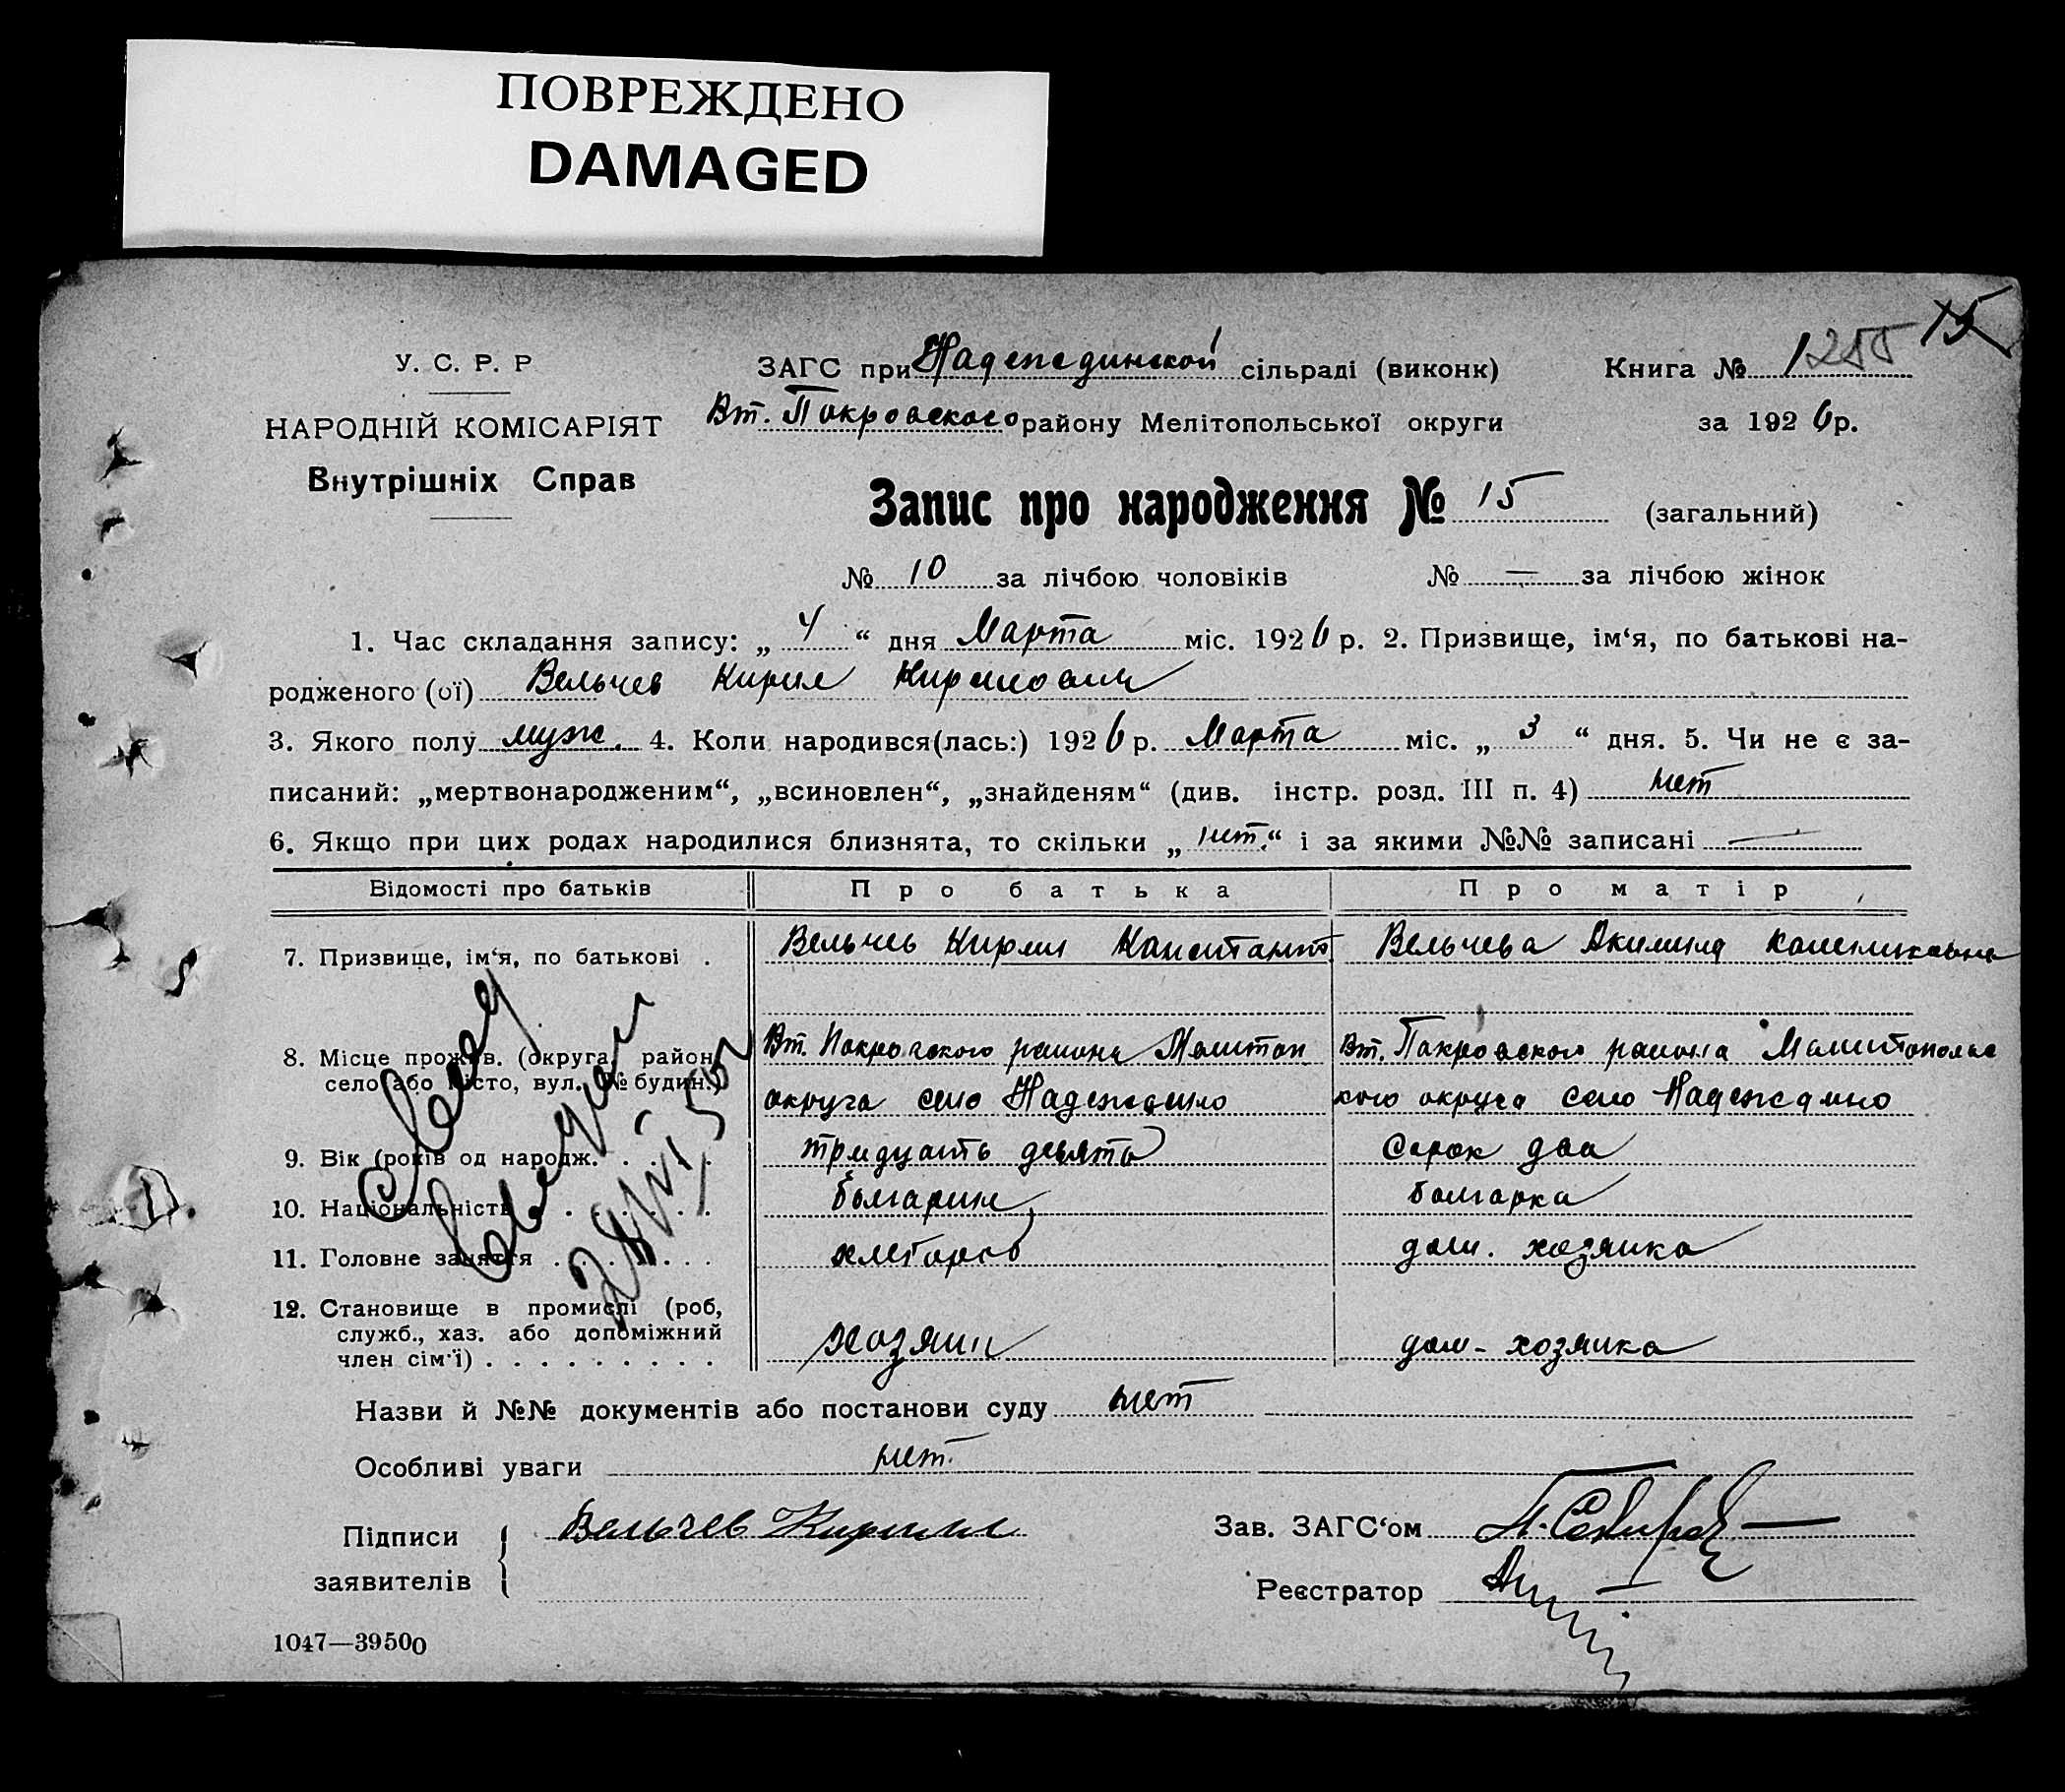 ПОВРЕЖДЕНО
DAMAGED
15
У. С. Р. Р
ЗАГС при Надеждинской сільраді (виконк)
Книга № 1 255
НАРОДНІЙ КОМІСАРІЯТ
Вт. Покровского району Мелітопольської округи
за 1926 р.
Внутрішніх Справ
Запис про народження № 15 (загальний)
№ 10 за лічбою чоловіків № — за лічбою жінок
1. Час складання запису: „ 4 “ дня Марта міс. 1926 р. 2. Призвище, ім‘я, по батькові на-
родженого (ої) Вельчев Кирил Кирилович
3. Якого полу муж. 4. Коли народився(лась:) 1926 р. Марта міс. „ 3 “ дня. 5. Чи не є за-
писаний: „мертвонародженим“, „всиновлен“, „знайденям“ (див. інстр. розд. III п. 4) нет
6. Якщо при цих родах народилися близнята, то скільки „нет.“ і за якими №№ записані —
Відомості про батьків Про батька Про матір
7. Призвище, ім‘я, по батькові . Вельчев Кирил Констант Вельчева Акилина
8. Місце прожив. (округа, район, Вт. Покровского района Мелитоп Вт. Покровского района Мелитопольс
село або місто, вул. № будин.) округа село Надеждино кого округа село Надеждино
9. Вік (років од народж. . . . . тридцать девять Сорок два
10. Національність . . . . . . болгарин болгарка
11. Головне заняття . . . . . . хлебороб дом. хозяйка
12. Становище в промислі (роб,
служб., хаз. або допоміжний Хозяин дом- хозяйка
член сім'ї) . . . . . . . . .
Назви й №№ документів або постанови суду нет
Особливі уваги нет.
Підписи Вельчев Кирилл
заявителів
Зав. ЗАГС‘ом
Реєстратор
1047—39500